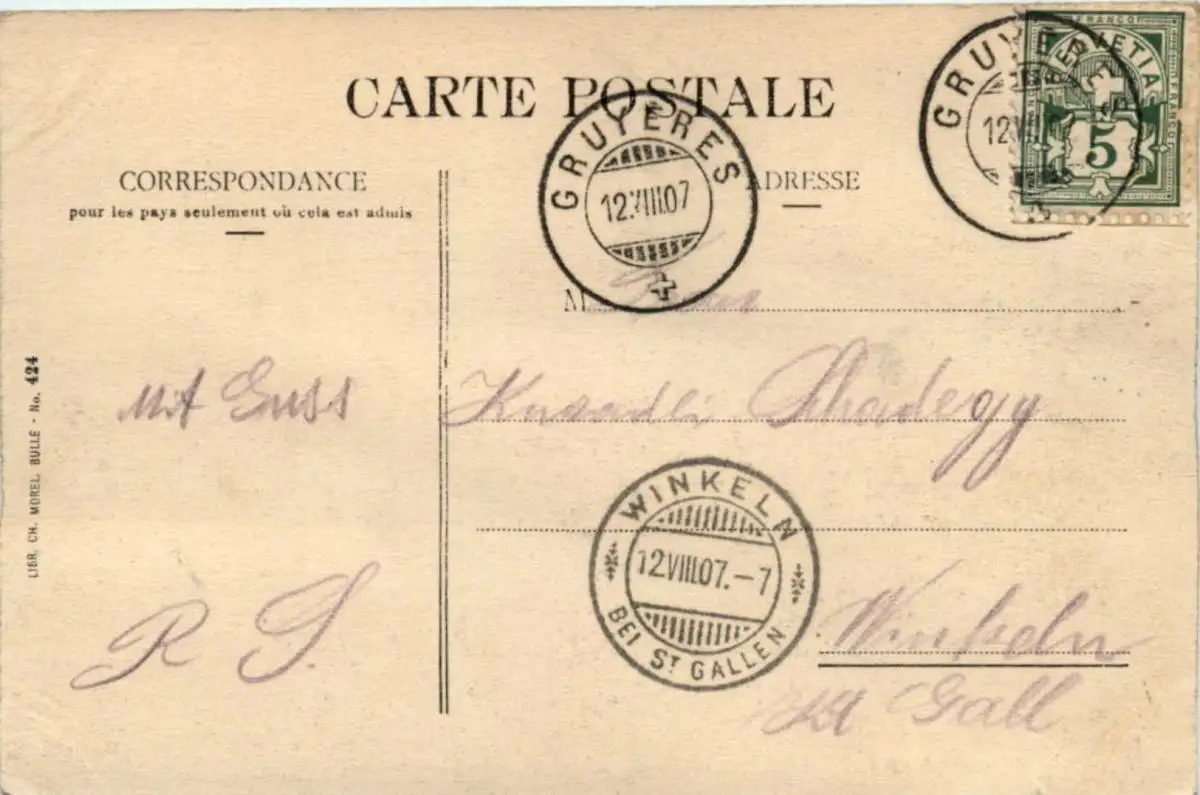 CARTE POSTALE
CORRESPONDANCE
pour les pays seulement où cela est admis
ADRESSE
GRUYÈRES
12.VIII.07
FRANCO
HELVETIA
FRANCO
5
GRUYÈRES
12.VIII.0
M
Mit Gruss
R S
Schadegg
Winkeln
St Gall
WINKELN
12.VIII.07.–7
BEI ST GALLEN
LIBR. CH. MOREL, BULLE - No. 424